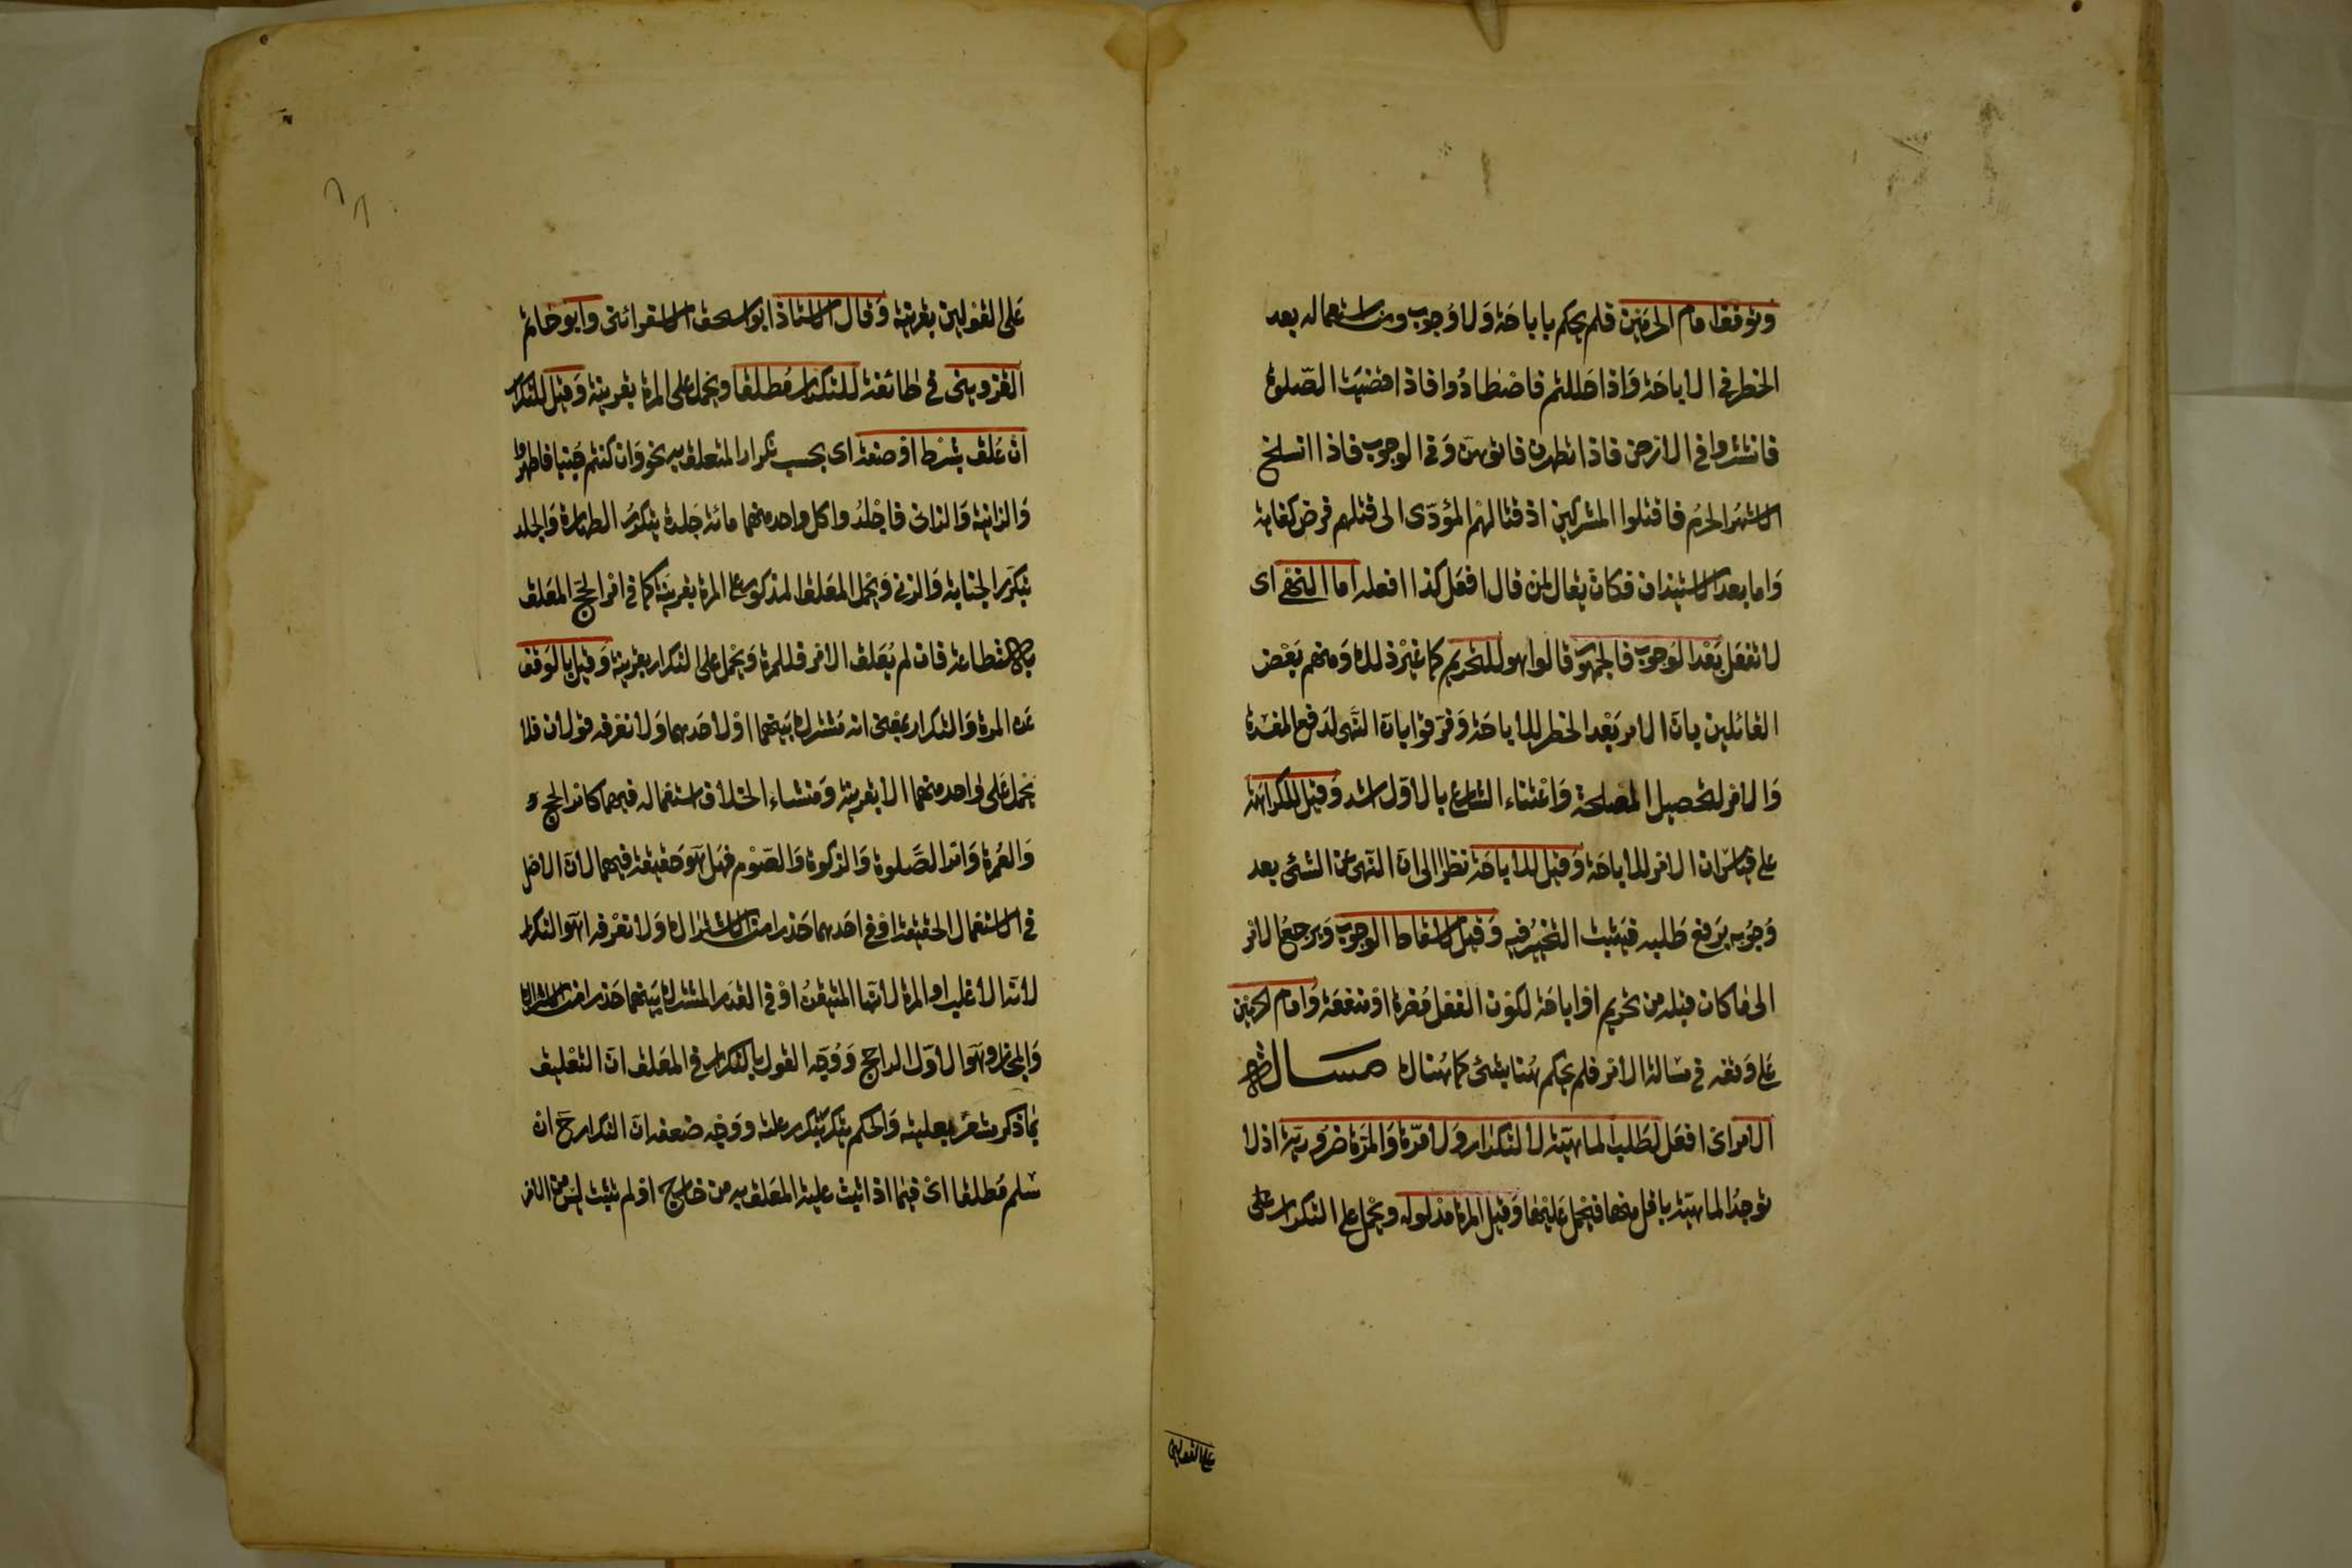 وتوقف امام الحرمين فلم يحكم باباحة ولا وجوب ومن استعماله بعد
الحظر في الاباحة واذا حللتم فاصطادوا فاذا قضيت الصلوة
فانتشروا في الارض فاذا تطهرن فاتوهن وفي الوجوب فاذا انسلخ
الاشهر الحرم فاقتلوا المشركين اذ قتالهم المؤدى الى قتلهم فرض كفاية
واما بعد الاستيذان فكان يقال لمن قال افعل كذا افعله اما النهى اى
لا تفعل بعد الوجوب فالجمهور قالوا هو للتحريم كما غير ذلك ومنهم بعض
القائلين بان الامر بعد الحظر للاباحة وفرقوا بان النهى لدفع المفسدة
والامر لتحصيل المصلحة واعتناء الشارع بالاول اشد وقيل للكراهة
على قياس ان الامر للاباحة وقيل للاباحة نظرا الى ان النهى عن الشئ بعد
وجوبه يرفع طلبه فيثبت التخيير فيه وقيل لاسقاط الوجوب ويرجع الامر
الى ما كان قبله من تحريم او اباحة لكون الفعل مضرة او منفعة وامام الحرمين
على وقفه في مسالة الامر فلم يحكم هنا بشئ كما هناك مسالة
الامر اى افعل لطلب الماهية لا لتكرار ولا مرة والمرة ضرورية اذ لا
توجد الماهية باقل منها فيحمل عليها وقيل المرة مدلوله ويحمل على التكرار على
على القولين
على القولين بقرينة وقال الاستاذ ابو اسحق الاسفرائنى وابو حاتم
القزوينى في طائفة للتكرار مطلقا ويحمل على المرة بقرينة وقيل للتكرار
ان علق بشرط او صفة اى بحسب تكرار المتعلق به نحو وان كنتم جنبا فاطهروا
والزانية والزانى فاجلدوا كل واحد منهما مائة جلدة يتكرر الطهارة والجلد
بتكرر الجنابة والزنى ويحمل المعلق المذكور على المرة بقرينة كما في امر الحج المعلق
بالاستطاعة فان لم يعلق الامر فللمرة ويحمل على التكرار بقرينة وقيل بالوقف
عن المرة والتكرار بمعنى انه مشترك بينهما او لاحدهما ولا نعرفه قولان فلا
يحمل على واحد منهما الا بقرينة ومنشاء الخلاف استعماله فيهما كامر الحج و
والعمرة وامر الصلوة والزكوة والصوم فهل هو حقيقة فيهما لان الاصل
في الاستعمال الحقيقة او في احدهما حذرا من الاشتراك ولا نعرفه اهو التكرار
لانه الاغلب او المرة لانها المتيقن او في القدر المشترك بينهما حذرا من الاشتراك
والمجاز وهو الاول الراجح ووجه القول بالتكرار في المعلق ان التعليق
بما ذكر مشعر بعليته والحكم يتكرر بتكرر علته ووجه ضعفه ان التكرار ح ان
سلم مطلقا اى فيما اذا ثبت علية المعلق به من خارج او لم تثبت ليس من الامر